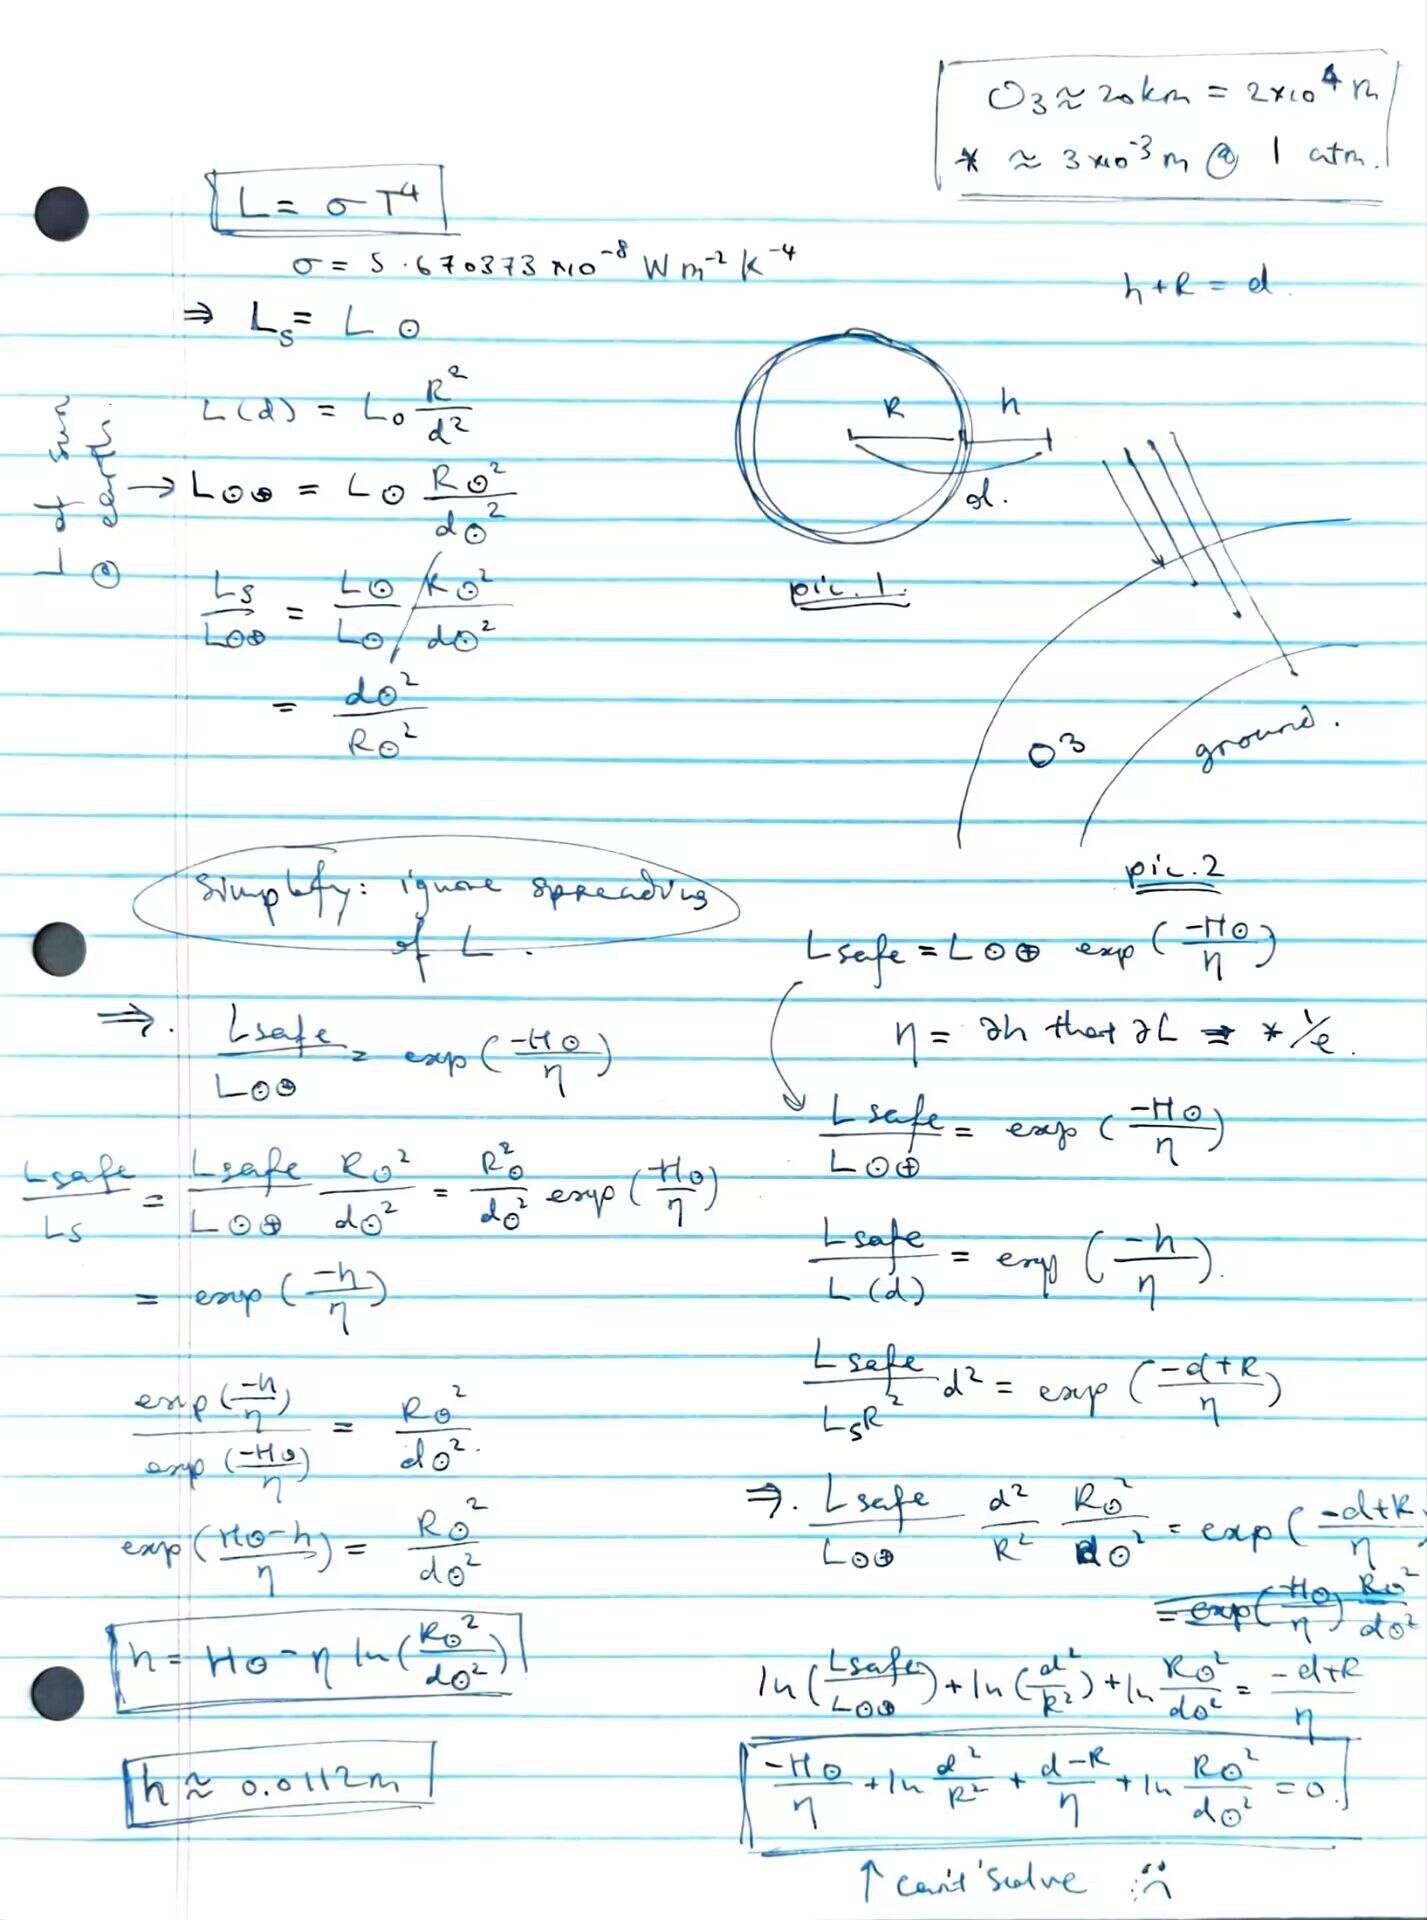 O₃ ≈ 20km = 2×10⁴ m
* ≈ 3×10⁻³ m @ 1 atm.
L = σT⁴
σ = 5.670373×10⁻⁸ W m⁻² K⁻⁴
⇒ Ls = L⊙
L(d) = L₀ R²/d²
L of sun
@ earth
→ L⊙⊕ = L⊙ R⊙²/d⊙²
Ls/L⊙⊕ = L⊙/L⊙ / R⊙²/d⊙²
= d⊙²/R⊙²
h+R = d.
R h
d.
pic.1.
O³
ground.
pic.2
Simplify: ignore spreading
of L.
⇒. Lsafe/L⊙⊕ = exp(-H⊙/η)
Lsafe/Ls = Lsafe/L⊙⊕ R⊙²/d⊙² = R⊙²/d⊙² exp(-H⊙/η)
= exp(-h/η)
exp(-h/η)/exp(-H⊙/η) = R⊙²/d⊙².
exp(H⊙-h/η) = R⊙²/d⊙²
h = H⊙ - η ln(R⊙²/d⊙²)
h ≈ 0.0112m
Lsafe = L⊙⊕ exp(-H⊙/η)
η = ∂h that ∂L ⇒ * 1/e.
Lsafe/L⊙⊕ = exp(-H⊙/η)
Lsafe/L(d) = exp(-h/η).
Lsafe/LsR² d² = exp(-d+R/η)
⇒. Lsafe/L⊙⊕ d²/R² R⊙²/d⊙² = exp(-d+R/η
= exp(-H⊙/η) R⊙²/d⊙²
ln(Lsafe/L⊙⊕) + ln(d²/R²) + ln R⊙²/d⊙² = -d+R/η
-H⊙/η + ln d²/R² + d-R/η + ln R⊙²/d⊙² = 0.
↑ can't solve :(